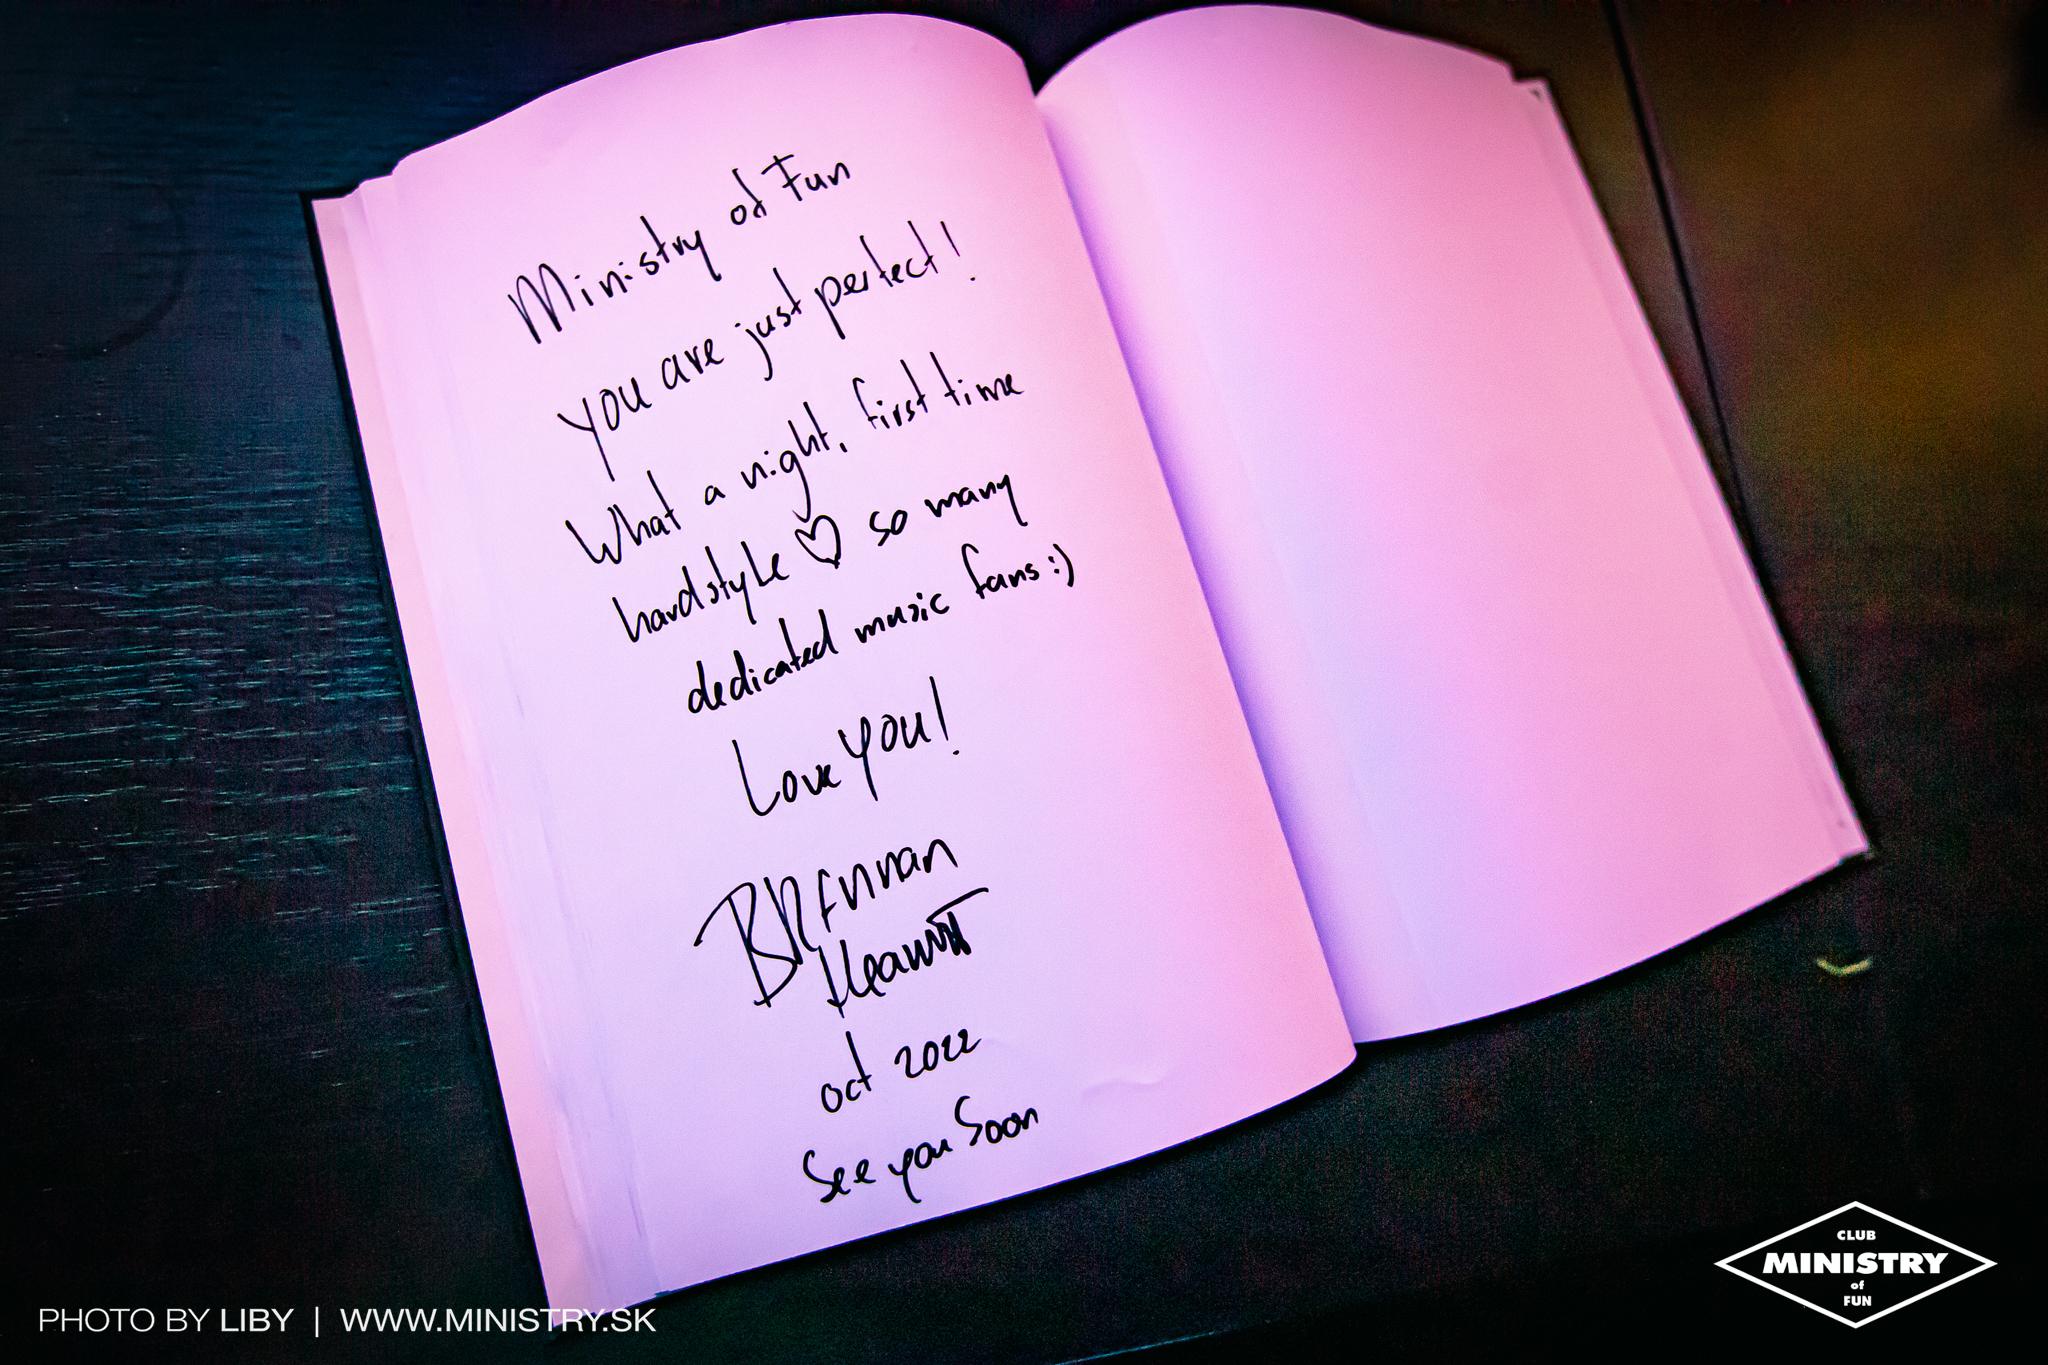 Ministry of Fun
you are just perfect!
What a night, first time
hardstyle ♡ so many
dedicated music fans :)
Love you!
BRennan
Heart
oct 2022
See you Soon
PHOTO BY LIBY | WWW.MINISTRY.SK
CLUB
MINISTRY
of
FUN